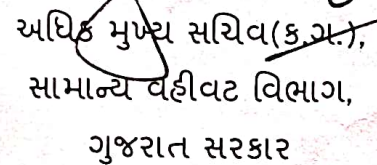 અધિક મુખ્ય સચિવ(ક.ગ.),
સામાન્ય વહીવટ વિભાગ,
ગુજરાત સરકાર